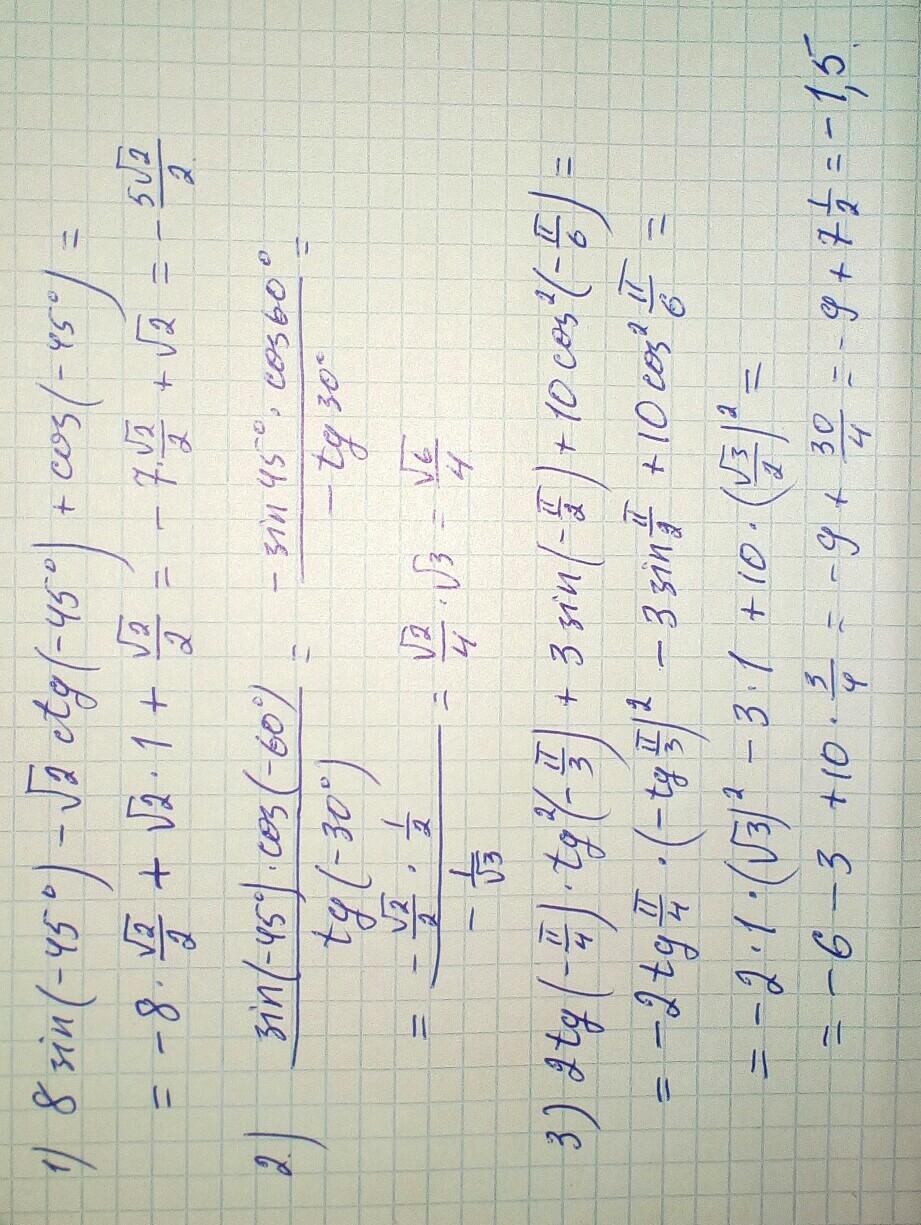 1) 8 sin(-45°) - √2 ctg(-45°) + cos(-45°) =
= -8 · √2/2 + √2 · 1 + √2/2 = -7·√2/2 + √2 = - 5√2/2
2) sin(-45°) · cos(-60°) / tg(-30°) = - sin 45° · cos 60° / - tg 30° =
= - √2/2 · 1/2 / - 1/√3 = √2/4 · √3 = √6/4
3) 2tg(-π/4) · tg²(-π/3) + 3 sin(-π/2) + 10 cos²(-π/6) =
= -2 tg π/4 · (-tg π/3)² - 3 sin π/2 + 10 cos² π/6 =
= -2 · 1 · (√3)² - 3 · 1 + 10 · (√3/2)² =
= -6 - 3 + 10 · 3/4 = -9 + 30/4 = -9 + 7 1/2 = -1,5.